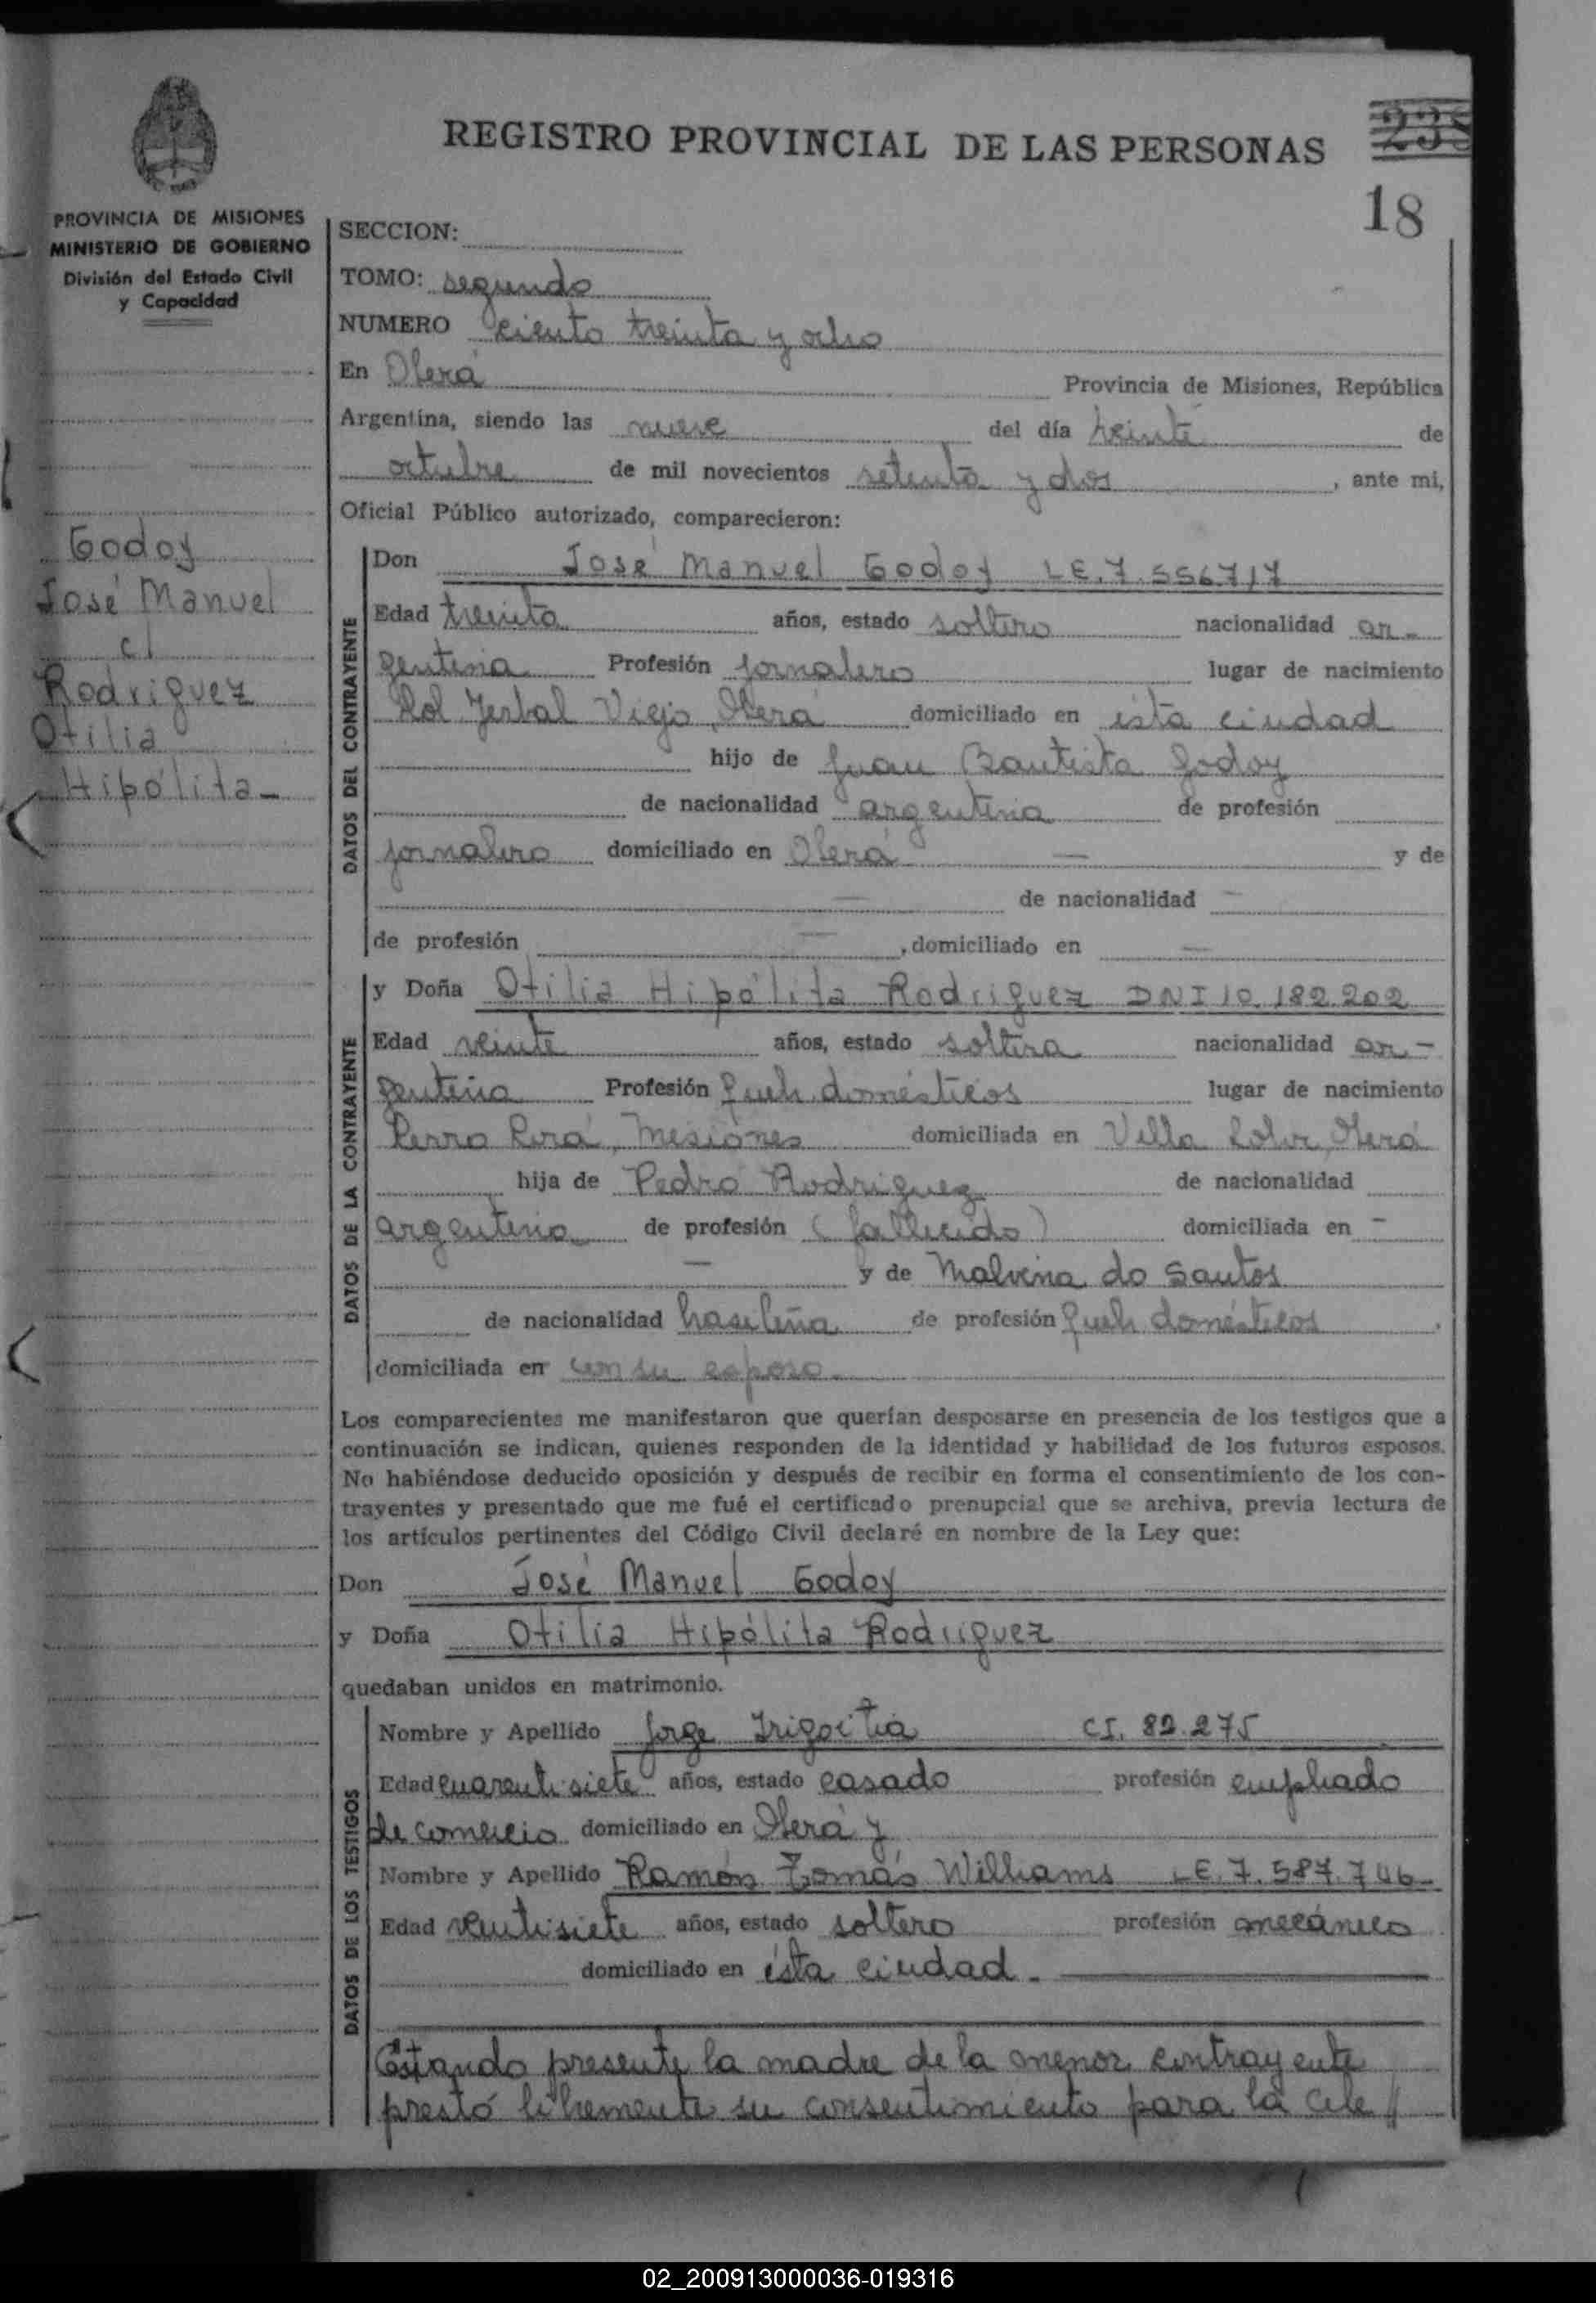 REGISTRO PROVINCIAL DE LAS PERSONAS
235
18
PROVINCIA DE MISIONES
MINISTERIO DE GOBIERNO
División del Estado Civil
y Capacidad
Godoy
José Manuel
c/
Rodriguez
Otilia
Hipólita-
SECCION:
TOMO: segundo
NUMERO ciento treinta y ocho
En Oberá Provincia de Misiones, República
Argentina, siendo las nueve del día treinta de
octubre de mil novecientos setenta y dos, ante mi,
Oficial Público autorizado, comparecieron:
DATOS DEL CONTRAYENTE
Don José Manuel Godoy LE. 7.556717
Edad treinta años, estado soltero nacionalidad ar-
gentina Profesión jornalero lugar de nacimiento
Col. Yerbal Viejo, Oberá domiciliado en ésta ciudad
hijo de Juan Bautista Godoy
de nacionalidad argentina de profesión
jornalero domiciliado en Oberá — y de
— de nacionalidad —
de profesión — , domiciliado en —
DATOS DE LA CONTRAYENTE
y Doña Otilia Hipólita Rodriguez DNI 10.182.202
Edad veinte años, estado soltera nacionalidad ar-
gentina Profesión queh. domésticos lugar de nacimiento
Cerro Corá, Misiones domiciliada en Villa Oberá
hija de Pedro Rodriguez de nacionalidad
argentina de profesión (fallecido) domiciliada en -
— y de Malvina do Santos
de nacionalidad brasileña de profesión queh. domésticos,
domiciliada en con su esposo.
Los comparecientes me manifestaron que querían desposarse en presencia de los testigos que a
continuación se indican, quienes responden de la identidad y habilidad de los futuros esposos.
No habiéndose deducido oposición y después de recibir en forma el consentimiento de los con-
trayentes y presentado que me fué el certificado prenupcial que se archiva, previa lectura de
los artículos pertinentes del Código Civil declaré en nombre de la Ley que:
Don José Manuel Godoy
y Doña Otilia Hipólita Rodriguez
quedaban unidos en matrimonio.
DATOS DE LOS TESTIGOS
Nombre y Apellido Jorge Irigoitia CI. 82.275
Edad cuarentisiete años, estado casado profesión empleado
de comercio domiciliado en Oberá y
Nombre y Apellido Ramón Tomás Williams LE. 7.587.746-
Edad veintisiete años, estado soltero profesión mecánico
domiciliado en ésta ciudad.
Estando presente la madre de la menor contrayente
prestó libremente su consentimiento para la cele//
02_200913000036-019316